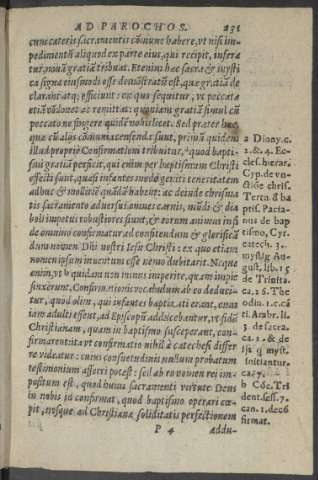 AD PAROCHOS. 231
cum cæteris sacramentis cōmune habere, vt nisi im-
pedimentū aliquod ex parte eius, qui recipit, infera
tur, nouā gratiā tribuat. Etenim hæc sacra & mysti
ca signa eiusmodi esse demōstratū est, quæ gratiā de
clarant atq; efficiunt: ex quo sequitur, vt peccata
etiā condonet ac remittat: quoniam gratiā simul cū
peccato ne fingere quidē nobis licet. Sed præter hæc,
quæ cū alijs cōmunia censenda sunt, primū quidem
illud propriè Confirmationi tribuitur, a quod bapti-
smi gratiā perficit, qui enim per baptismum Christi
effecti sunt, quasi infantes modò geniti teneritatem
adhuc & mollitiē quandā habent: ac deinde chrisma
tis sacramento aduersus omnes carnis, mūdi & dia
boli impetus robustiores fiunt, & eorum animus in fi
de omnino confirmatur ad confitendum & glorificā
dum nomen Dñi nostri Iesu Christi: ex quo etiam
nomen ipsum inuentum esse nemo dubitarit. Neque
enim, vt b quidam non minus imperitè, quàm impiè
finxerunt, Confirmationis vocabulum ab eo deduci-
tur, quòd olim, qui infantes baptizati erant, cum
iam adulti essent, ad Episcopū adducebantur, vt fidē
Christianam, quam in baptismo susceperant, con-
firmarent: ita vt confirmatio nihil à catechesi differ
re videatur: cuius consuetudinis nullum probatum
testimonium afferri potest: sed ab eo nomen rei im-
positum est, quòd huius sacramenti virtute Deus
in nobis id confirmat, quod baptismo operari cœ-
pit, nosque ad Christianæ soliditatis perfectionem
P 4 addu-
a Diony. c.
2. & 4. Ec-
cles. hierar.
Cyp. de vn-
ctiõe chris.
Tertu. d ba
ptis. Pacia-
nus de bap
tismo, Cyr.
catech. 3.
mystag. Au-
gust. lib. 15
de Trinita.
ca. 26. The
odin. 1. c. cā
ti. Ambr. li.
3. de sacra.
ca. 2. & de
ijs q myst.
initiantur.
ca. 7.
b Cōc. Tri
dent. sess. 7.
can. 1. de cō
firmat.